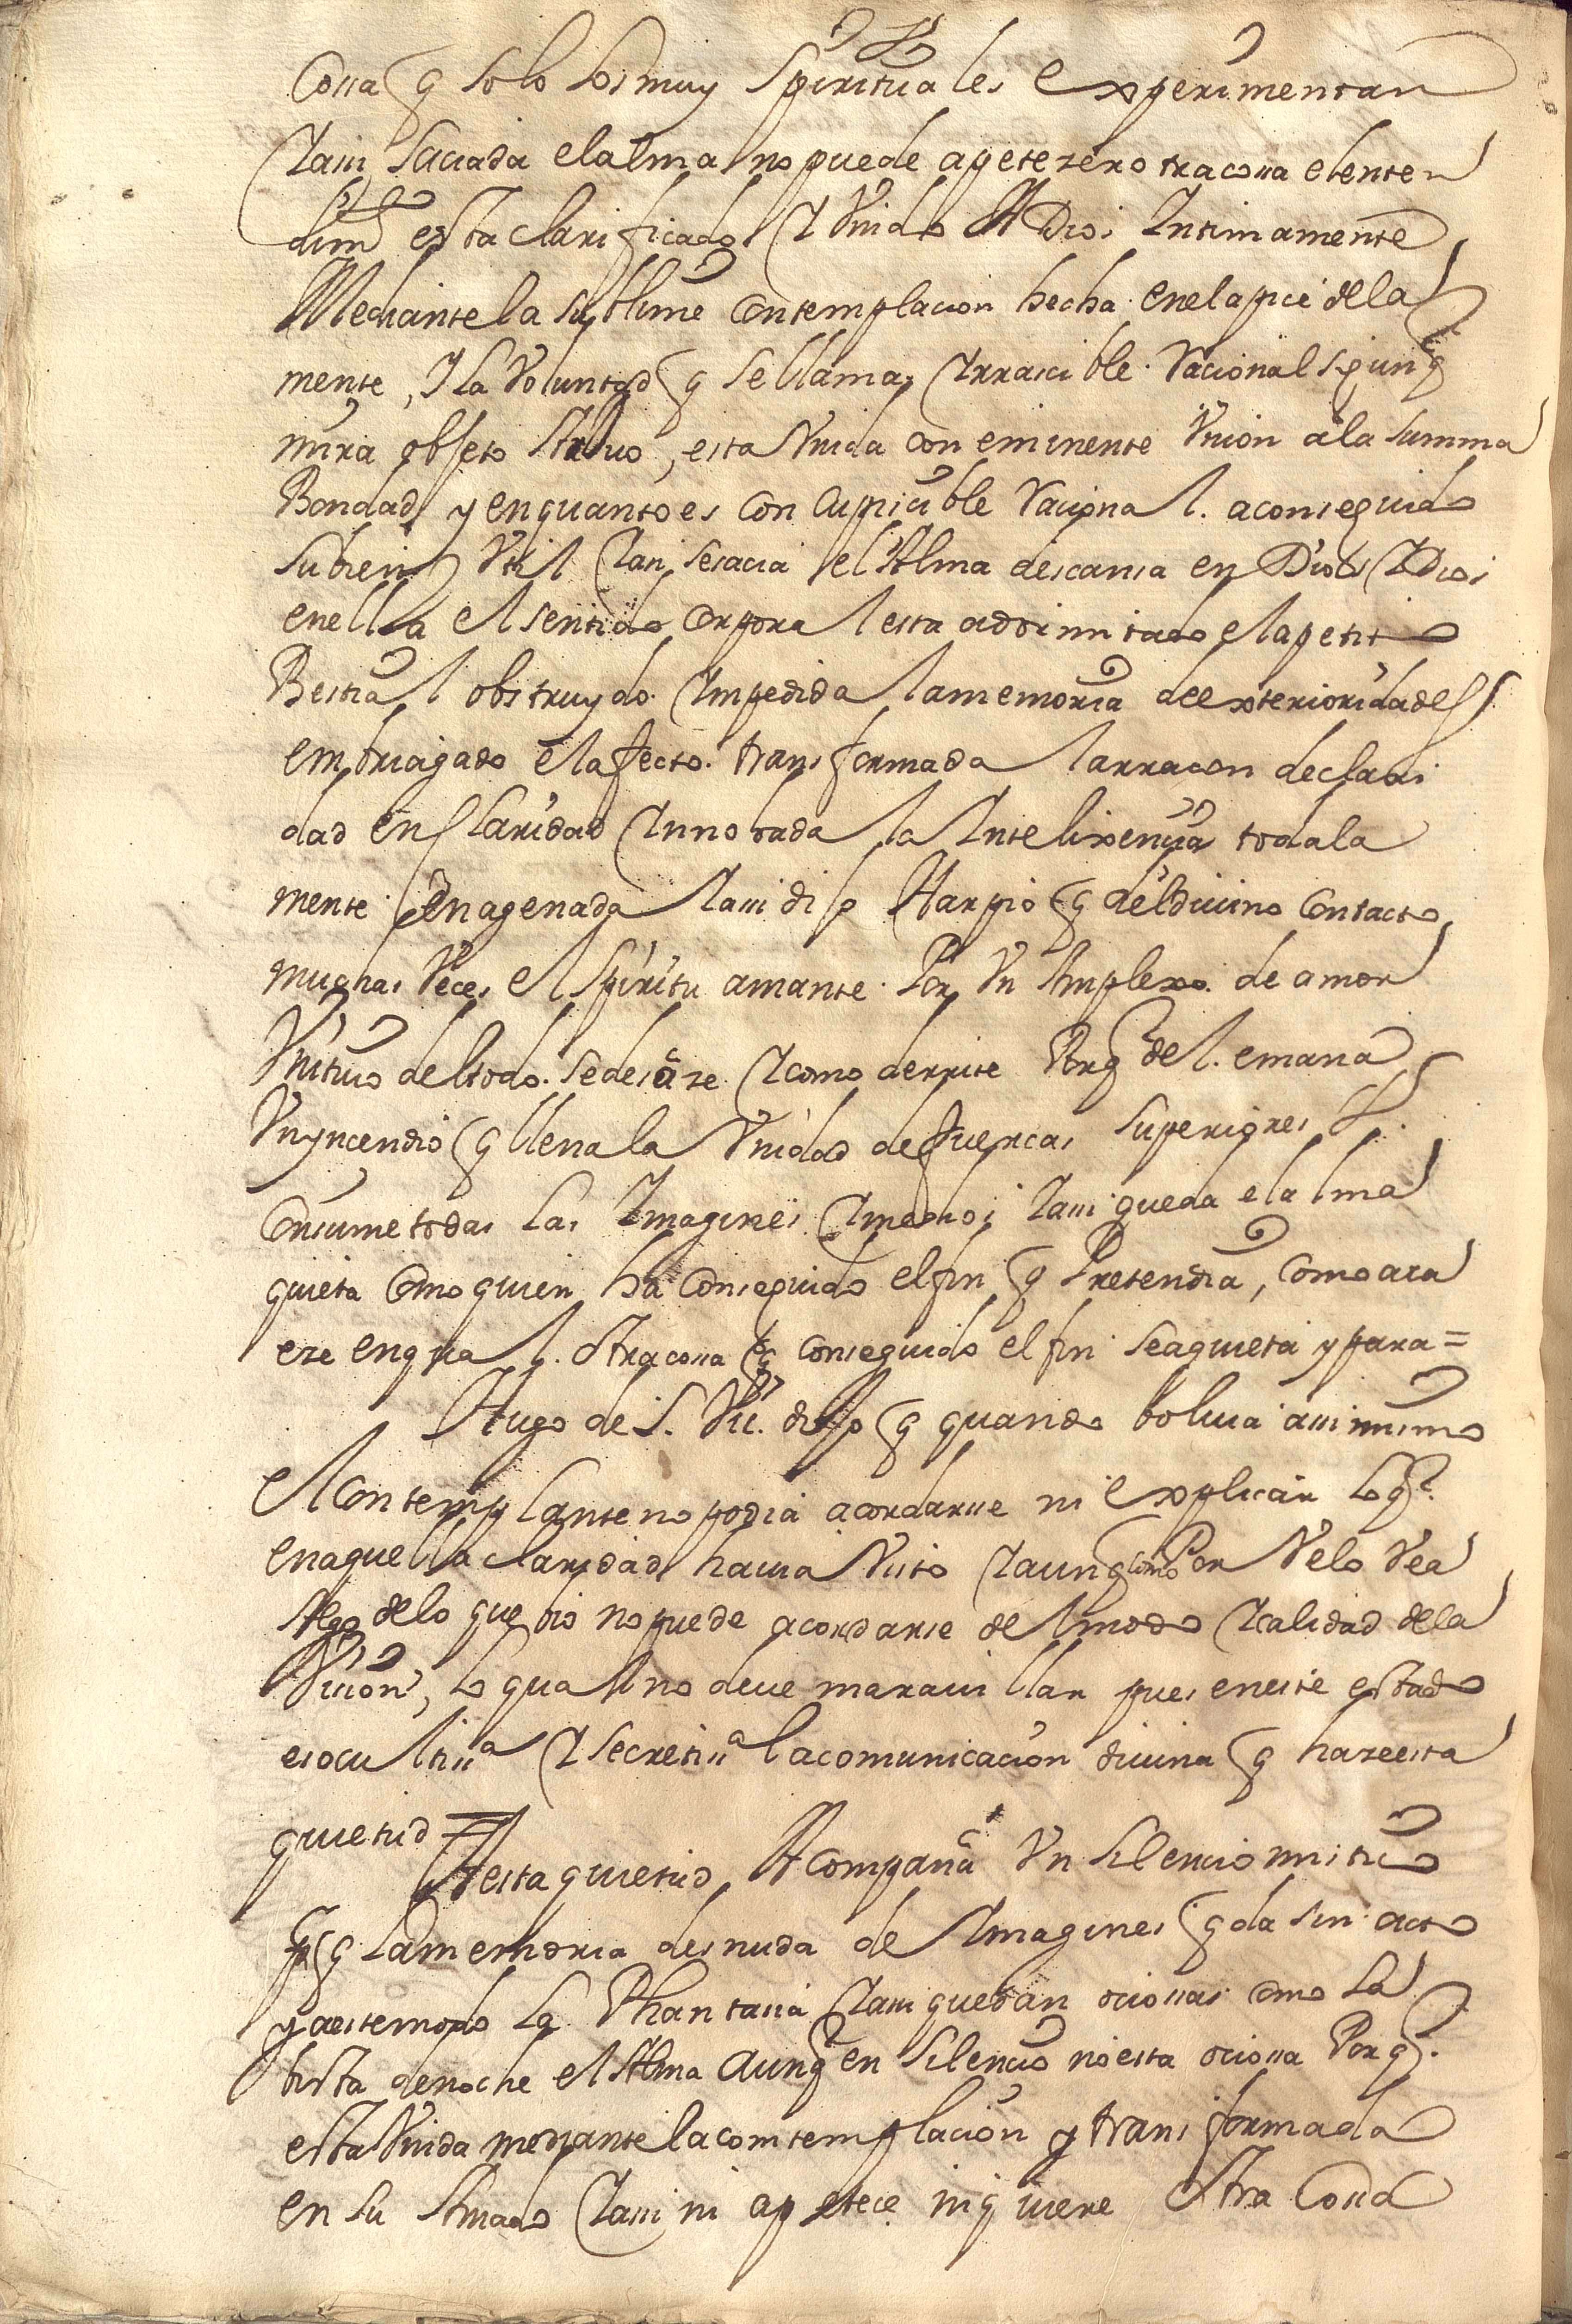 Cossa q solo los muy spirituales experimentan
Y assi saciada el alma no puede apetezer otra cossa el enten
dimº esta clarificado Y Vnido A Dios Intimamente
Mediante la sublime Contemplacion hecha en el apice de la
mente, Y la Voluntad q se llama Yrrascible Racional segun q
mira objeto Arduo, esta Vnida con eminente Vnion a la summa
Bondad y en quanto es Concupicible Racional. a conseguido
su bien Vtil Y assi se sacia el Alma descansa en Dios Y Dios
en ella el sentido Corporal esta adormitado el apetito
Bestial obstruydo Ympedida la memoria de exterioridades
embriagado el afecto. transformada la rraçon de clari
dad en Claridad Ynnobada la Intelixencia toda la
mente enagenada Y assi dijo Harpio q del divino Contacto
muchas Veces el Spiritu amante. Por Vn Amplexo de amor
Vnitiuo del todo. se desaze Y como derrite Porq de el. emana
Vn yncendio q llena la Vnidad de fuerças superiores Y
Consume todas las Imagines Y medios Y assi queda el alma
quieta Como quien ha Conseguido el fin q Pretendia, Como aca
eze en qual q. Otra cossa q conseguido el fin se aquieta y para =
Hugo de S. Vic. dijo q quando boluia assi mismo
el Contemplante no podia acordarsse ni explicar Lo q.
en aquella claridad hauia Visto Y aunq como Por Velo Vea
Algo de lo que vio no puede acordarse del modo Y calidad de la
Vision, Lo qual no deue marauillar pues en este estado
es ocultissª Y secretissª la comunicacion diuina q haze esta
quietud =
A esta quietud Acompaña Vn Silencio mistico
pq La memoria desnuda de Imagines qda sin acto
y a este modo La Phantasia Y assi quedan ociossas como La
bista de noche el Alma Aunq en Silencio no esta ociossa Porq.
esta Vnida mediante la comtemplacion y transformada
en su Amado Y assi ni apetece ni quiere Otra Cossa